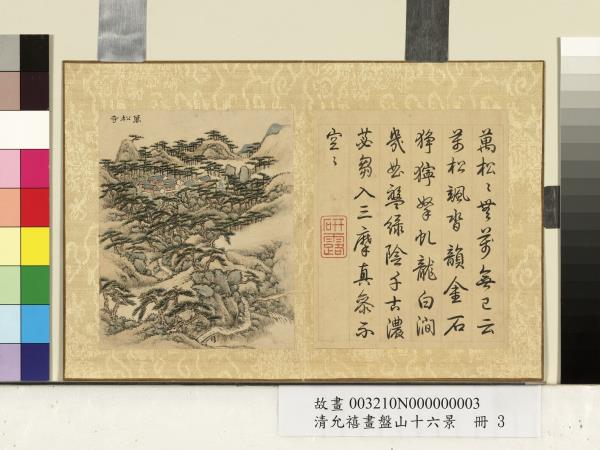 萬松寺
萬松〻rows萬無已云
萬松颯沓韻金石
猙獰拏虬龍白澗
幾曲壑綠陰千古濃
苾芻入三摩真參不
空〻
研露
故畫 003210N000000003
清允禧畫盤山十六景 冊 3